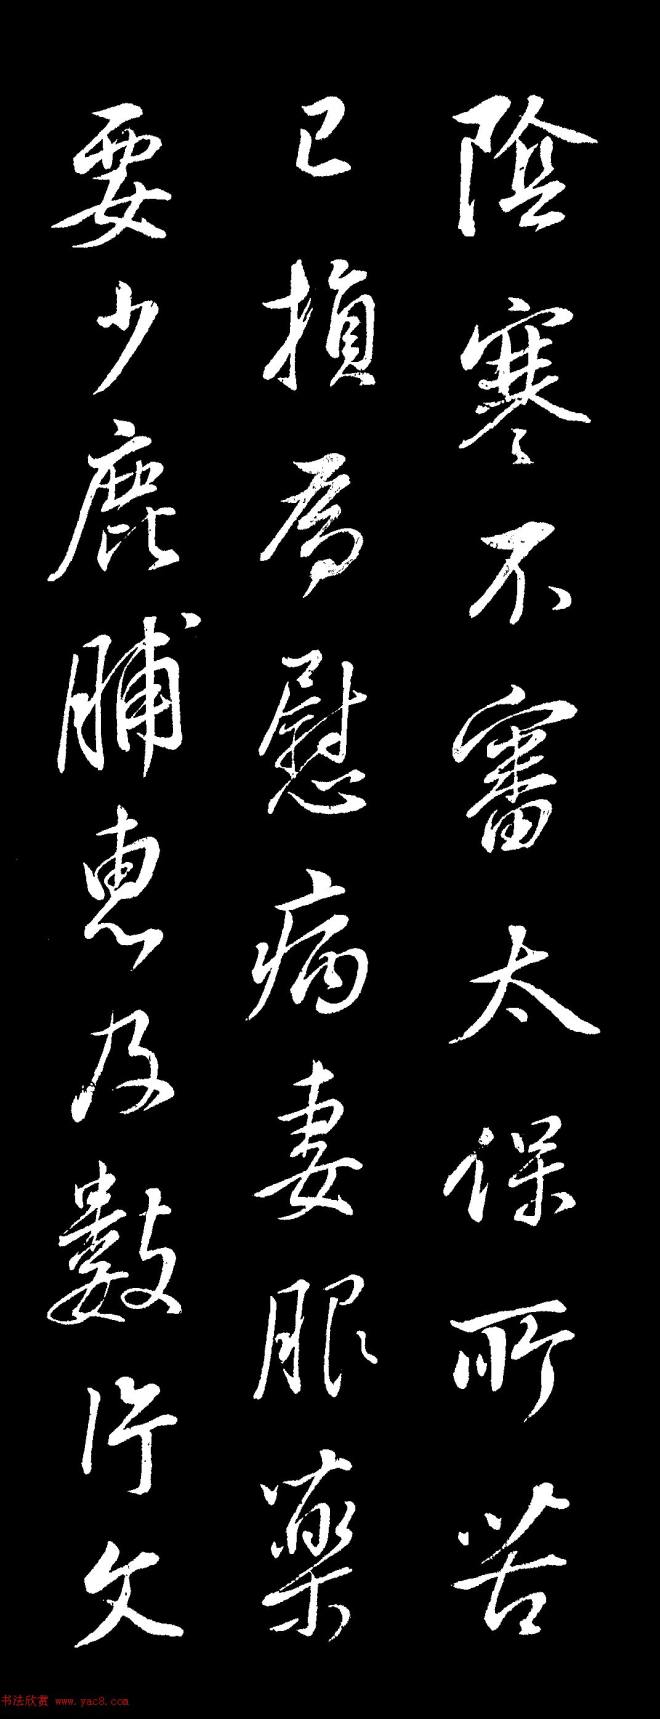 陰寒不審太保所苦
已損爲慰病妻服藥
要少鹿脯惠及數片文
书法欣赏 www.yac8.com